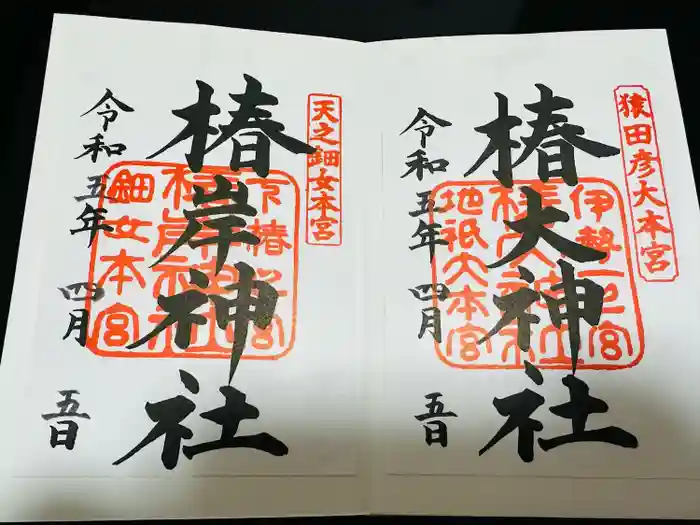 猿田彦大本宮
椿大神社
伊勢一之宮
地祇大本宮
令和五年 四月 五日
天之鈿女本宮
椿岸神社
鈿女本宮
令和五年 四月 五日